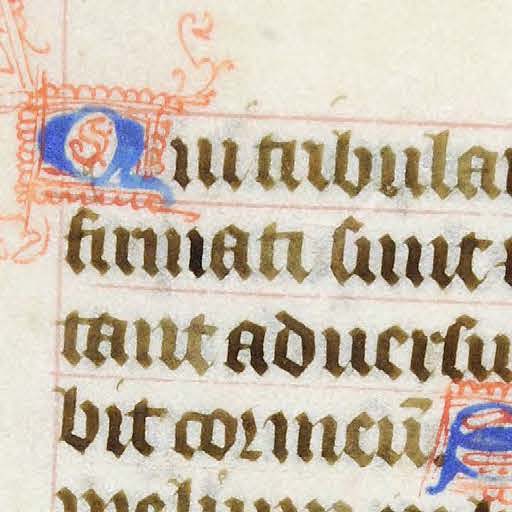 Qui tribula
firmati sunt
tant aduersu
bit cor meū.